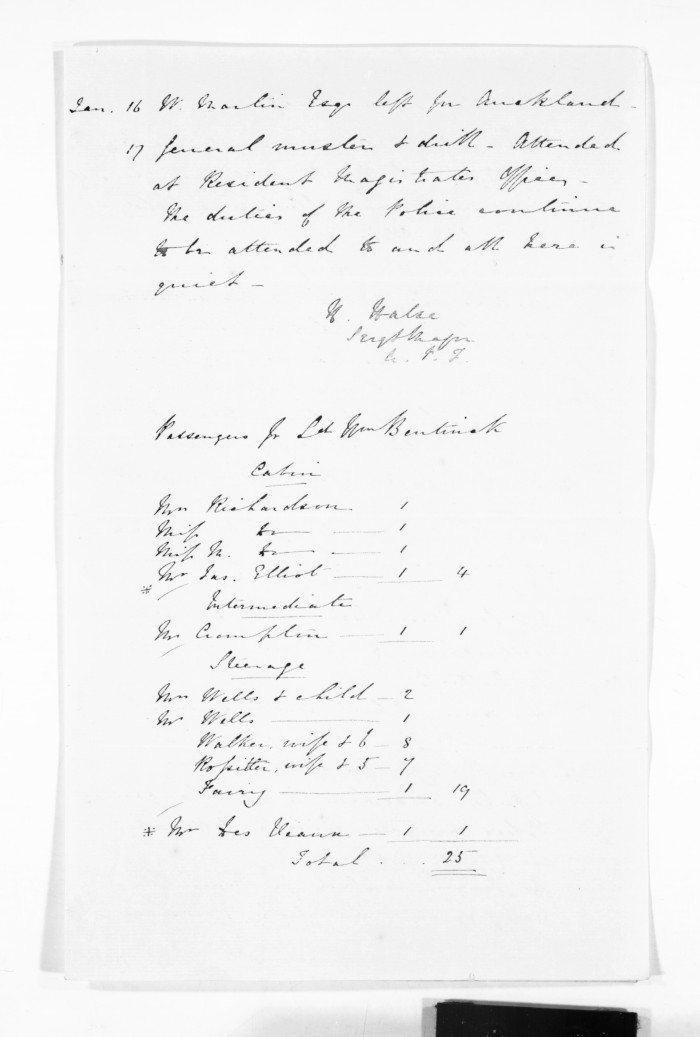 Jan. 16 W. Martin Esqr left for Auckland -
17 General muster & drill - Attended
at Resident Magistrates Office -
The duties of the Police continue
to be attended to and all here is
quiet -
H. Halse
Sergt Major
A. P. F.
Passengers pr Ld Wm Bentinck
Cabin
Mrs Richardson 1
Miss Do 1
Miss M. Do 1
* Mr Jas. Elliot 1 4
Intermediate
Mr Crompton 1 1
Steerage
Mrs Wells & child - 2
Mr Wells 1
Walker, wife & 6 - 8
Rossitter, wife & 5 - 7
1 19
* Mr 1 1
Total . . . 25